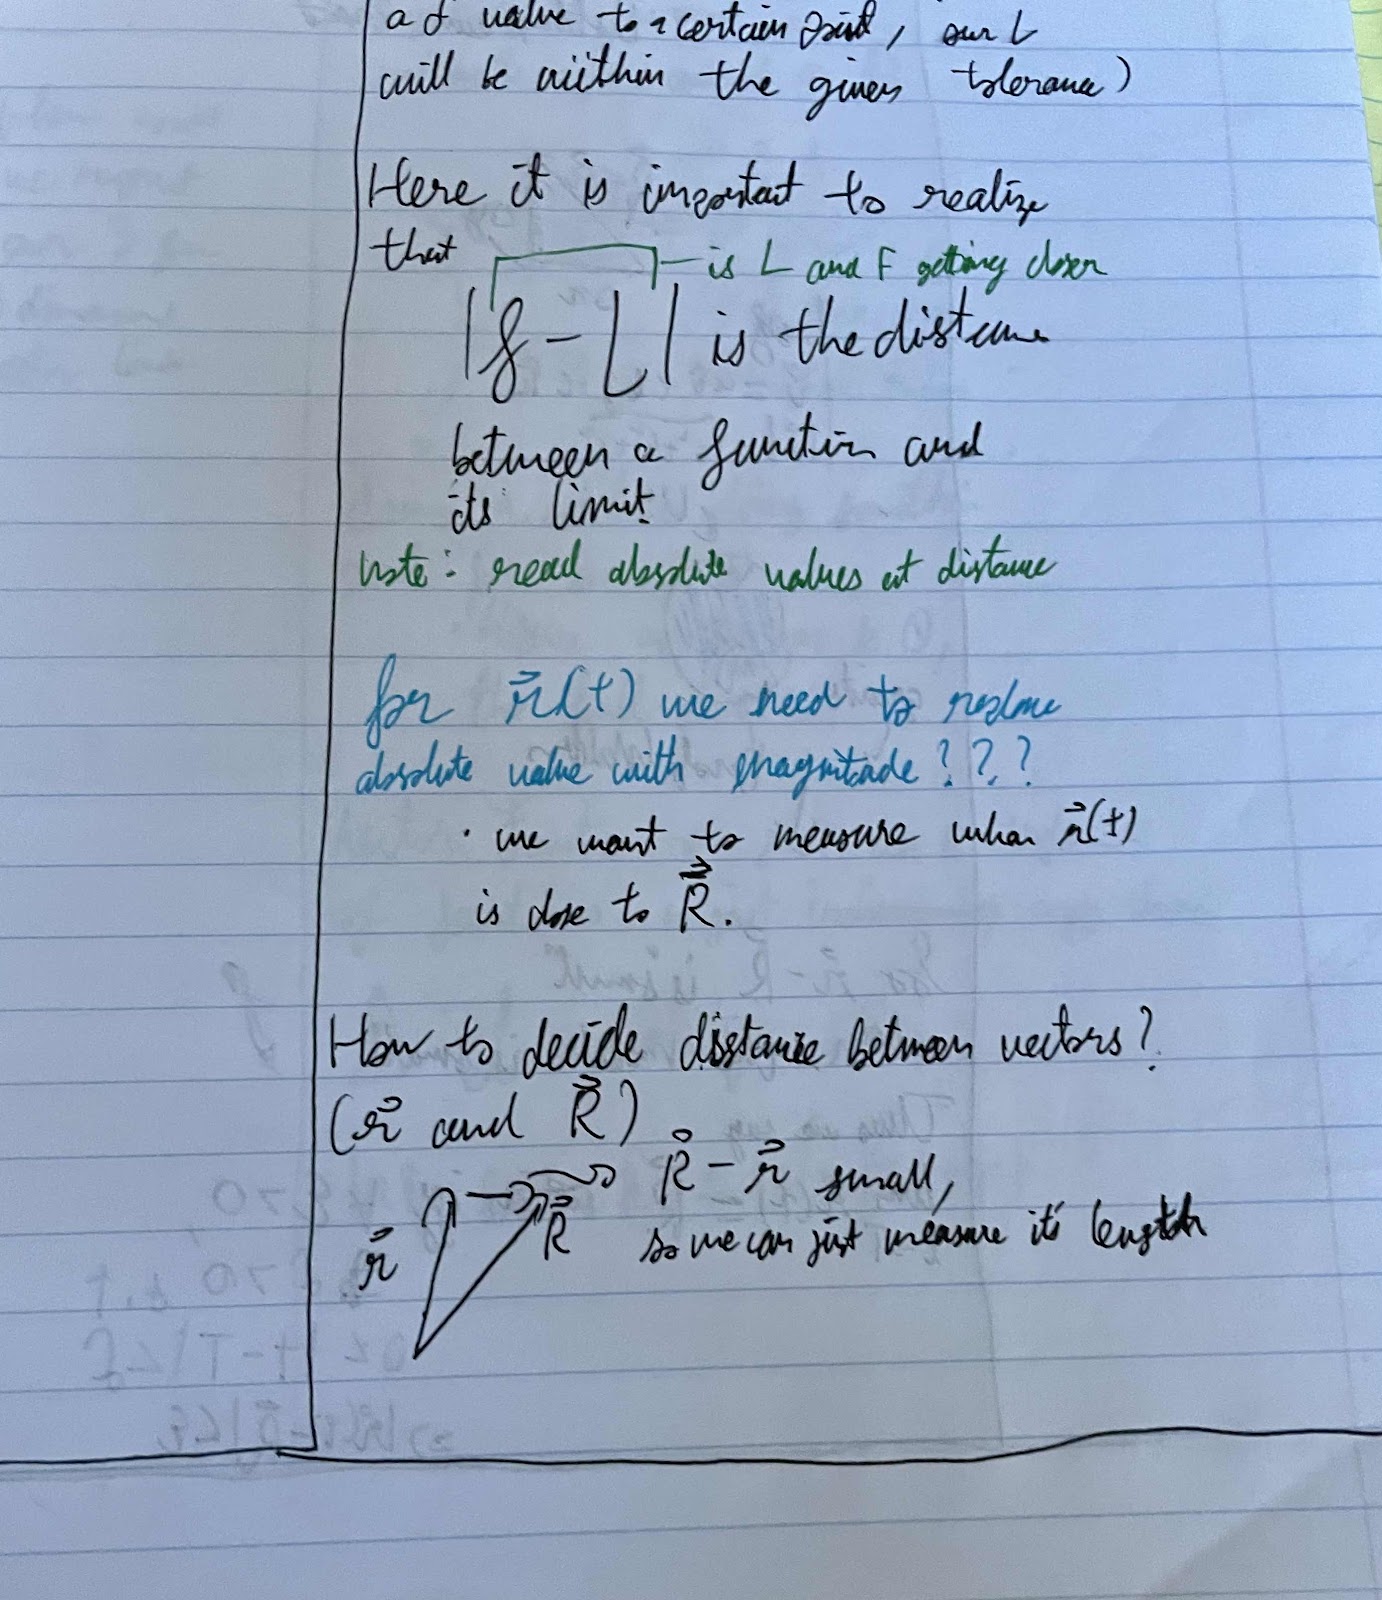 a δ value to a certain point, our L
will be within the given tolerance)
Here it is important to realize
that
is L and F getting closer
|f - L| is the distance
between a function and
its limit
Note: read absolute values at distance
for r⃗(t) we need to replace
absolute value with magnitude???
· we want to measure when r⃗(t)
is close to R⃗.
How to decide distance between vectors?
(r⃗ and R⃗)
R⃗ - r⃗ small,
r⃗ R⃗ so we can just measure it's length